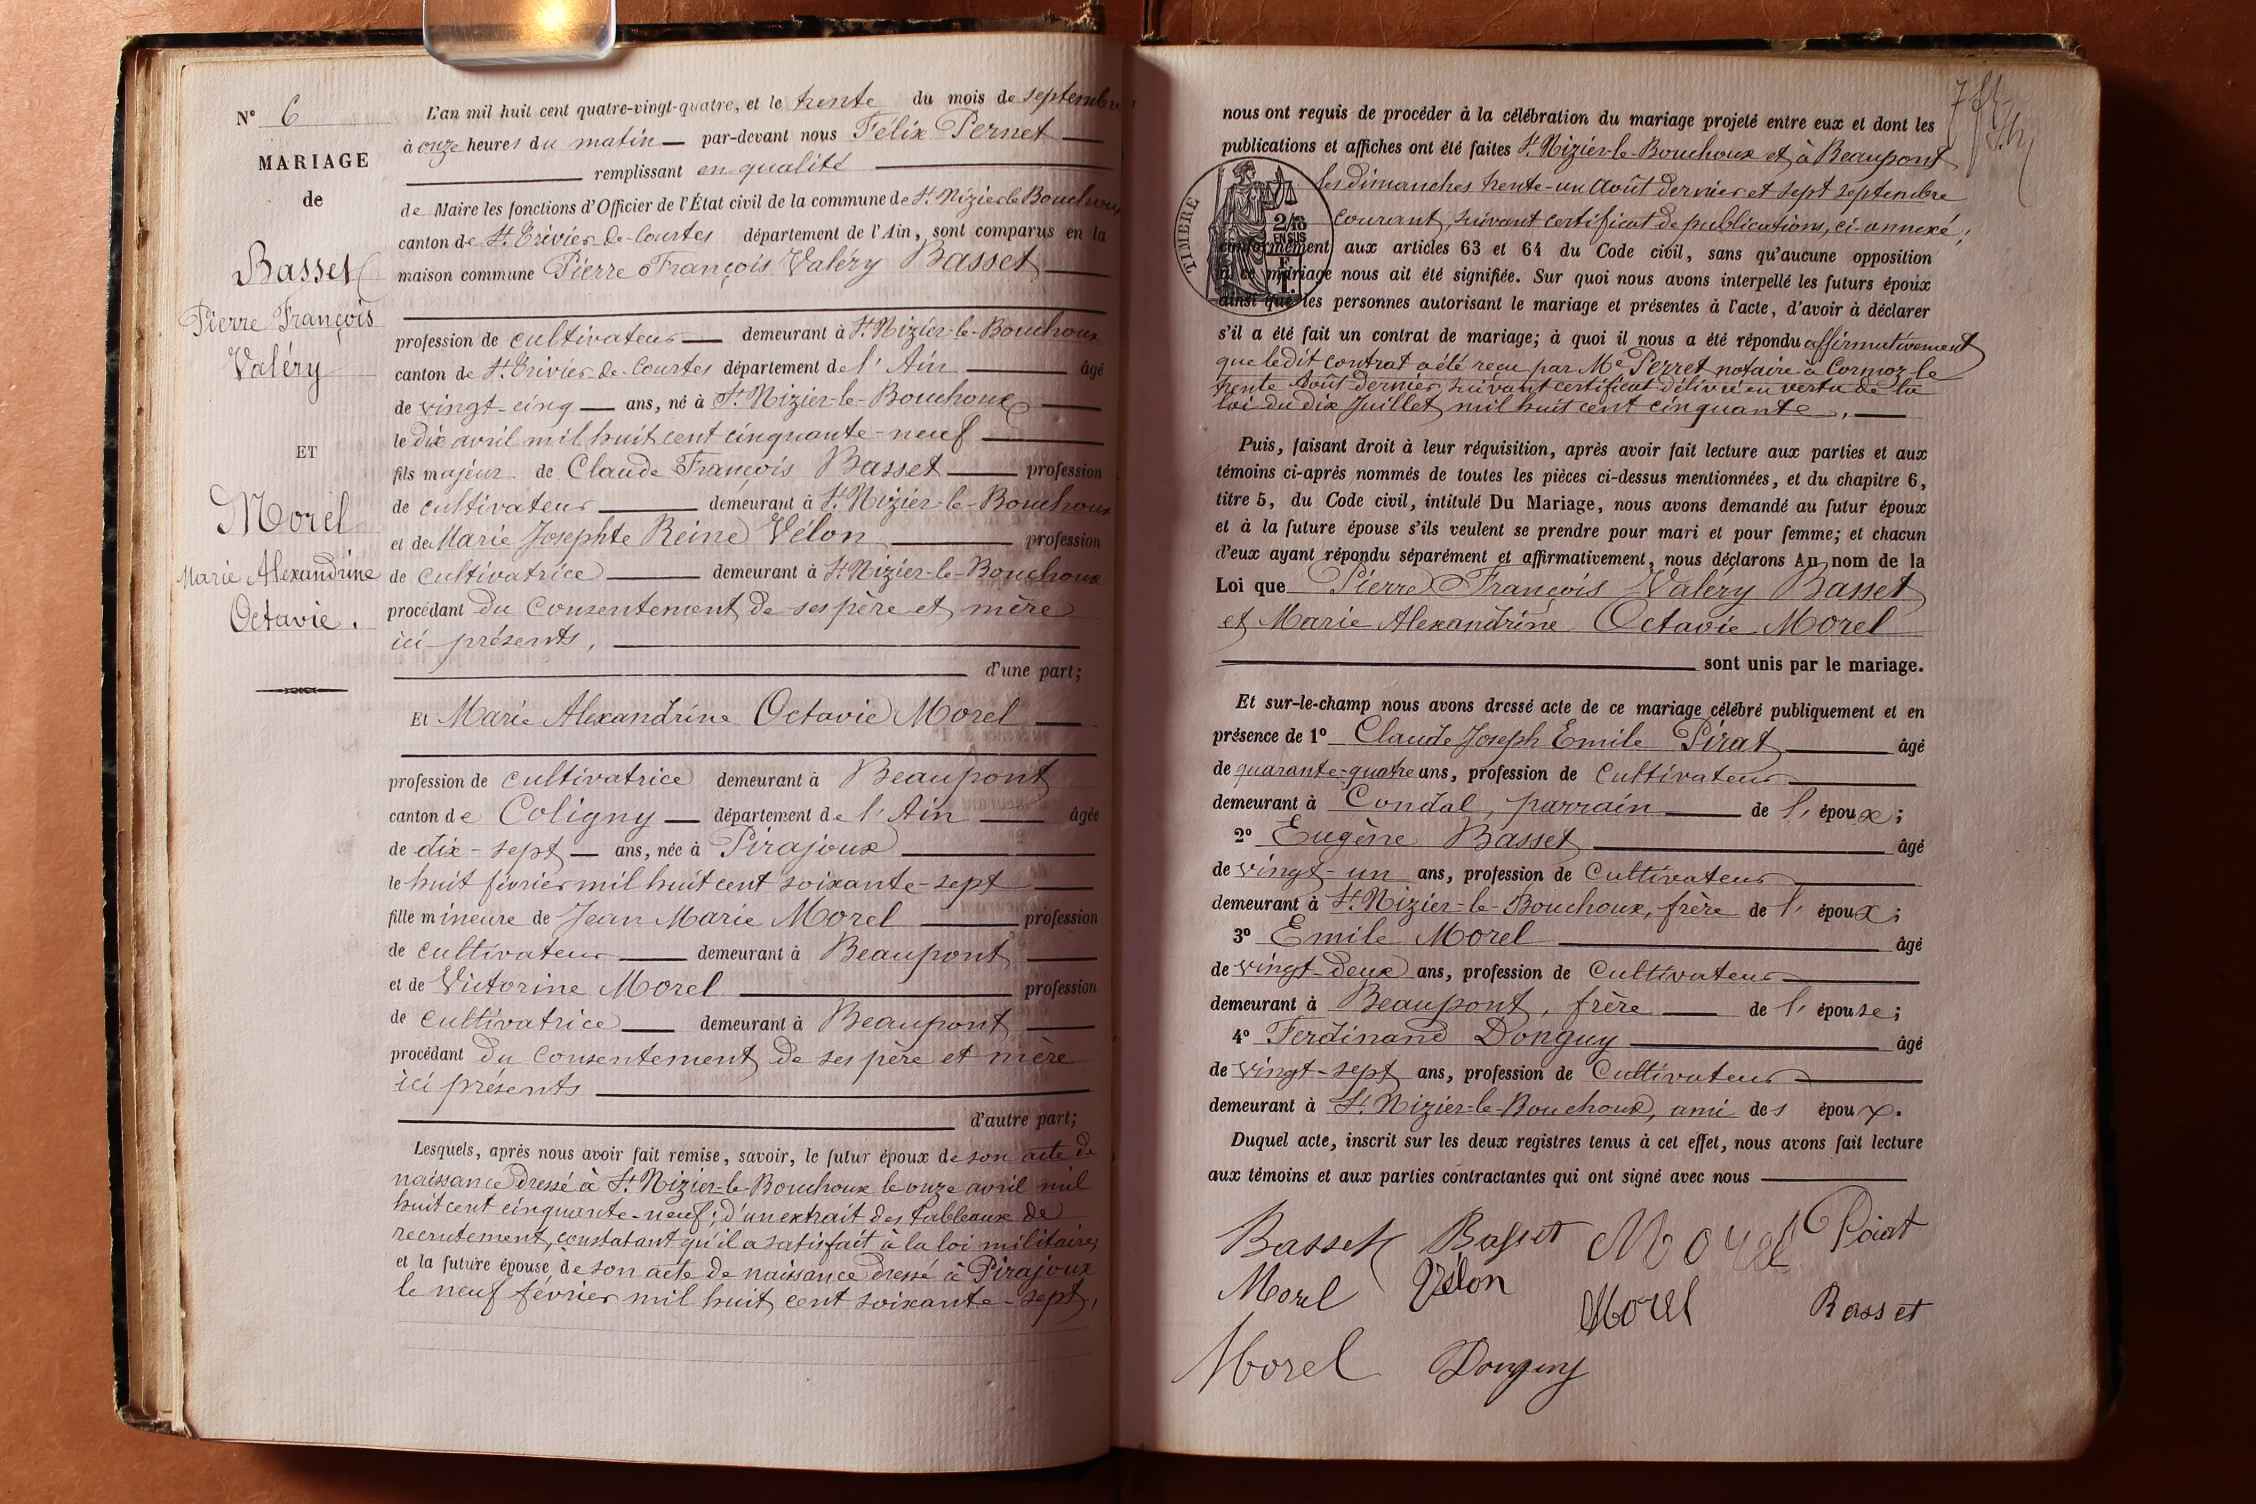 N° 6
MARIAGE
de
Basset
Pierre François
Valéry
ET
Morel
Marie Alexandrine
Octavie.
L'an mil huit cent quatre-vingt-quatre, et le trente du mois de septembre
à onze heures du matin par-devant nous Félix Pernet
remplissant en qualité
de Maire les fonctions d'Officier de l'État civil de la commune de St Nizier-le-Bouchoux
canton de St Trivier-de-Courtes département de l'Ain, sont comparus en la
maison commune Pierre François Valéry Basset
profession de cultivateur demeurant à St Nizier-le-Bouchoux
canton de St Trivier-de-Courtes département de l'Ain âgé
de vingt-cinq ans, né à St Nizier-le-Bouchoux
le dix avril mil huit cent cinquante-neuf
fils majeur de Claude François Basset profession
de cultivateur demeurant à St Nizier-le-Bouchoux
et de Marie Josephte Reine Vélon profession
de cultivatrice demeurant à St Nizier-le-Bouchoux
procédant du consentement de ses père et mère
ici présents,
d'une part;
Et Marie Alexandrine Octavie Morel
profession de cultivatrice demeurant à Beaupont
canton de Coligny département de l'Ain âgée
de dix-sept ans, née à Pirajoux
le huit février mil huit cent soixante-sept
fille mineure de Jean Marie Morel profession
de cultivateur demeurant à Beaupont
et de Victorine Morel profession
de cultivatrice demeurant à Beaupont
procédant du consentement de ses père et mère
ici présents
d'autre part;
Lesquels, après nous avoir fait remise, savoir, le futur époux de son acte de
naissance dressé à St Nizier-le-Bouchoux le onze avril mil
huit cent cinquante-neuf; d'un extrait des tableaux de
recrutement, constatant qu'il a satisfait à la loi militaire;
et la future épouse de son acte de naissance dressé à Pirajoux
le neuf février mil huit cent soixante-sept,
nous ont requis de procéder à la célébration du mariage projeté entre eux et dont les
publications et affiches ont été faites St Nizier-le-Bouchoux et à Beaupont
les dimanches trente-un Août dernier et sept septembre
courant, suivant certificat de publications, ci-annexé;
TIMBRE
2/10
EN SUS
conformément aux articles 63 et 64 du Code civil, sans qu'aucune opposition
à ce mariage nous ait été signifiée. Sur quoi nous avons interpellé les futurs époux
ainsi que les personnes autorisant le mariage et présentes à l'acte, d'avoir à déclarer
s'il a été fait un contrat de mariage; à quoi il nous a été répondu affirmativement
que ledit contrat a été reçu par Me Perret notaire à Cormoz le
trente Août dernier, suivant certificat délivré en vertu de la
loi du dix Juillet mil huit cent cinquante,
Puis, faisant droit à leur réquisition, après avoir fait lecture aux parties et aux
témoins ci-après nommés de toutes les pièces ci-dessus mentionnées, et du chapitre 6,
titre 5, du Code civil, intitulé Du Mariage, nous avons demandé au futur époux
et à la future épouse s'ils veulent se prendre pour mari et pour femme; et chacun
d'eux ayant répondu séparément et affirmativement, nous déclarons Au nom de la
Loi que Pierre François Valéry Basset
et Marie Alexandrine Octavie Morel
sont unis par le mariage.
Et sur-le-champ nous avons dressé acte de ce mariage célébré publiquement et en
présence de 1° Claude Joseph Emile Pirat âgé
de quarante-quatre ans, profession de Cultivateur
demeurant à Condal, parrain de l'époux;
2° Eugène Basset âgé
de vingt-un ans, profession de Cultivateur
demeurant à St Nizier-le-Bouchoux, frère de l'époux;
3° Emile Morel âgé
de vingt-deux ans, profession de Cultivateur
demeurant à Beaupont, frère de l'épouse;
4° Ferdinand Donguy âgé
de vingt-sept ans, profession de Cultivateur
demeurant à St Nizier-le-Bouchoux, ami des époux.
Duquel acte, inscrit sur les deux registres tenus à cet effet, nous avons fait lecture
aux témoins et aux parties contractantes qui ont signé avec nous
Basset Basset Morel Pirat
Morel Vélon Morel Basset
Morel Donguy